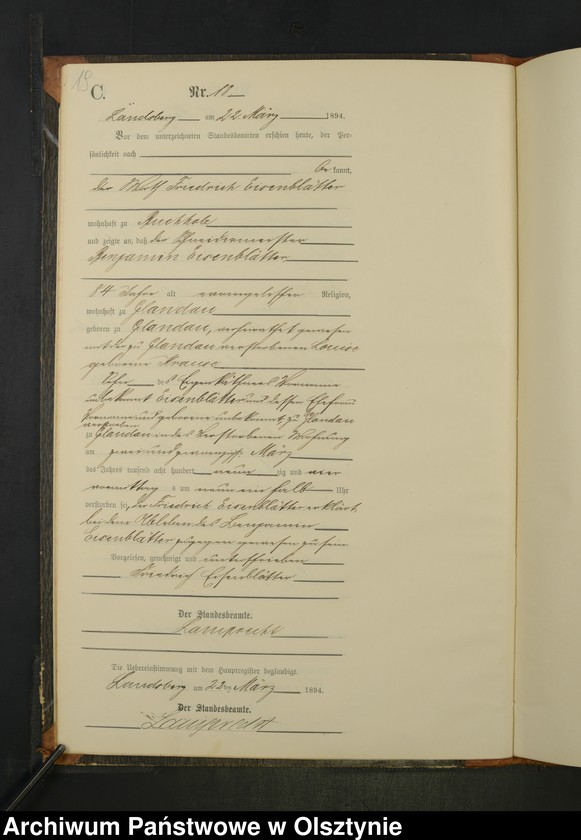 19
C.
Nr. 18
Landsberg am 22 März 1894.
Vor dem unterzeichneten Standesbeamten erschien heute, der Per-
sönlichkeit nach
be kannt,
der Wirth Friedrich Eisenblätter
wohnhaft zu Buchholz
und zeigte an, daß der Schneidermeister
Benjamin Eisenblätter
84 Jahre alt evangelischer Religion,
wohnhaft zu Glandau
geboren zu Glandau, verheirathet gewesen
mit der zu Glandau verstorbenen Louise
geborene Krause
Sohn des Eigenkäthners Vorname
unbekannt Eisenblätter und dessen Ehefrau
Vorname und geborene unbekannt zu Glandau
verstorben
zu Glandau in des Verstorbenen Wohnung
am zwei und zwanzigsten März
des Jahres tausend acht hundert neun zig und vier
vormittags um neun ein halb Uhr
verstorben sei, der Friedrich Eisenblätter erklärt,
bei dem Ableben des Benjamin
Eisenblätter zugegen gewesen zu sein
Vorgelesen, genehmigt und unterschrieben
Friedrich Eisenblätter
Der Standesbeamte.
Lamprecht
Die Uebereinstimmung mit dem Hauptregister beglaubigt.
Landsberg am 22 März 1894.
Der Standesbeamte.
Lamprecht
Archiwum Państwowe w Olsztynie